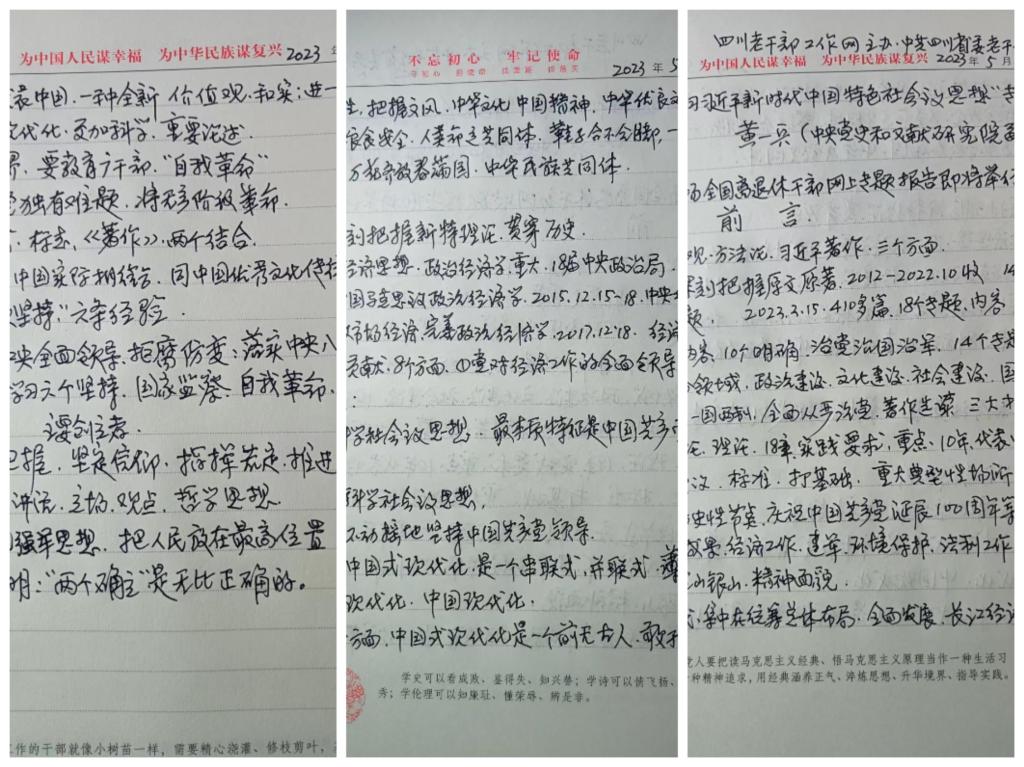 为中国人民谋幸福 为中华民族谋复兴 2023
中国.一种全新 价值观.和实;进一
代化.更加科学.重要论述.
界.要教育广干部."自我革命"
独有难题.将无产阶级革命.
标志.《著作》.两个结合.
中国实际相结合.同中国优秀文化传
坚持:"六条经验.
央全面领导.拒腐防变:落实中央八
学习六个坚持.国家监察.自我革命.
主要创立者.
把握.坚定信仰.指挥若定.推进
讲话.立场.观点.哲学思想.
强军思想.把人民放在最高位置
明:"两个确立"是无比正确的。
工作的干部就像小树苗一样,需要精心浇灌、修枝剪叶,
不忘初心 牢记使命
2023年5
把握文风.中华文化 中国精神.中华优良文
粮食安全.人类命运共同体.鞋子合不合脚.一
万花齐放春满园.中华民族共同体.
刻把握新特理论.贯穿历史.
经济思想.政治经济学.重大.18届中央政治局.
国马克思议政治经济学.2015.12.15-18.中央
市场经济.完善政治经济学.2017.12.18.经济
贡献.8个方面.①党对经济工作的全面领导
学社会议思想.最本质特征是中国共产
科学社会议思想.
不动摇地坚持中国共产党领导.
中国式现代化.是一个串联式,并联式.
现代化.中国现代化.
方面.中国式现代化是一个前无古人.敢于
学史可以看成败、鉴得失、知兴替;学诗可以情飞扬、
秀;学伦理可以知廉耻、懂荣辱、辨是非。
四川老干部工作网主办.中共四川省委老干
为中国人民谋幸福 为中华民族谋复兴 2023年5月
习近平新时代中国特色社会议思想"专
黄一兵(中央党史和文献研究院
场全国离退休干部网上专题报告即将举行
前 言
观.方法论.习近平著作.三个方面
深刻把握原文原著.2012-2022.10收 14
题. 2023.3.15.410多篇.18个专题.内容
内容.10个明确.治党治国治军.14个专题
领域.政治建设.文化建设.社会建设.国
一国两制.全面从严治党.著作选读.三大
论.理论.18年.实践要求.重点.10年.代表
议.标准.打基础.重大典型性场所
史性节点.庆祝中国共产党诞辰100周年等
效果.经济工作.建军.环境保护.法制工作
山银山.精神面貌.
集中在统筹总体布局.全面发展.长江经济
党人要把读马克思主义经典、悟马克思主义原理当作一种生活习
一种精神追求,用经典涵养正气、淬炼思想、升华境界、指导实践。